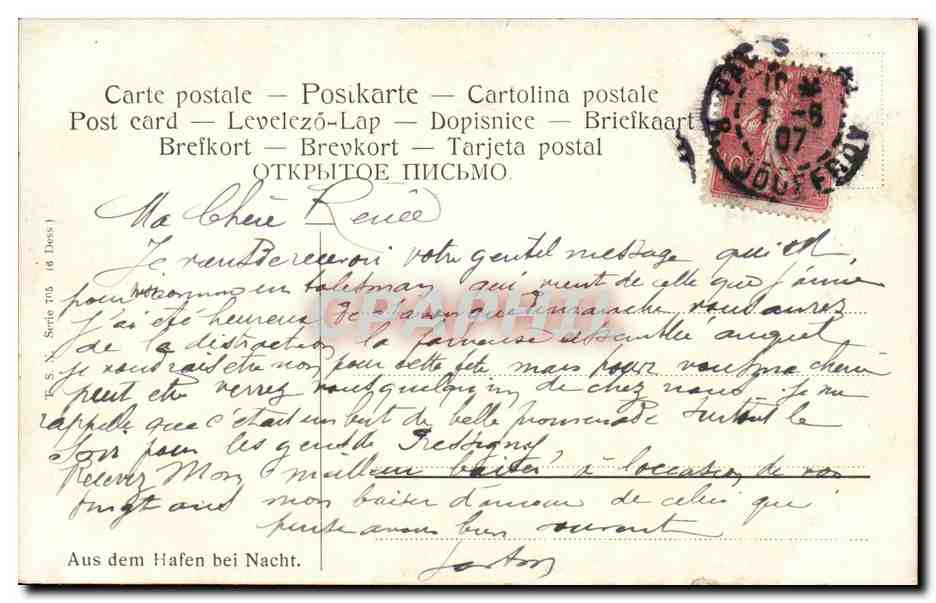 Carte postale — Postkarte — Cartolina postale
Post card — Levelező-Lap — Dopisnice — Briefkaart
Brefkort — Brevkort — Tarjeta postal
ОТКРЫТОЕ ПИСЬМО
10
7 - 6
07
JOUFFROY
Ma Chère Renée
Je viens de recevoir votre gentil message qui est
pour moi comme un talisman qui vient de celle que j'aime
j'ai été heureux de savoir que Dimanche vous aurez
de la distraction la fameuse
je voudrais être pour cette fête mais pour vous ma chérie
peut être verrez vous quelqu'un de chez nous je me
rappelle que c'était un but de belle promenade surtout le
Soir pour les gens de Pressigny
Recevez Mon meilleur baiser à l'occasion de vos
vingt ans mon baiser d'amour de celui qui
pense a vous bien souvent
Gaston
T. S. N. Serie 705 (6 Dess)
CPAPHIL
Aus dem Hafen bei Nacht.